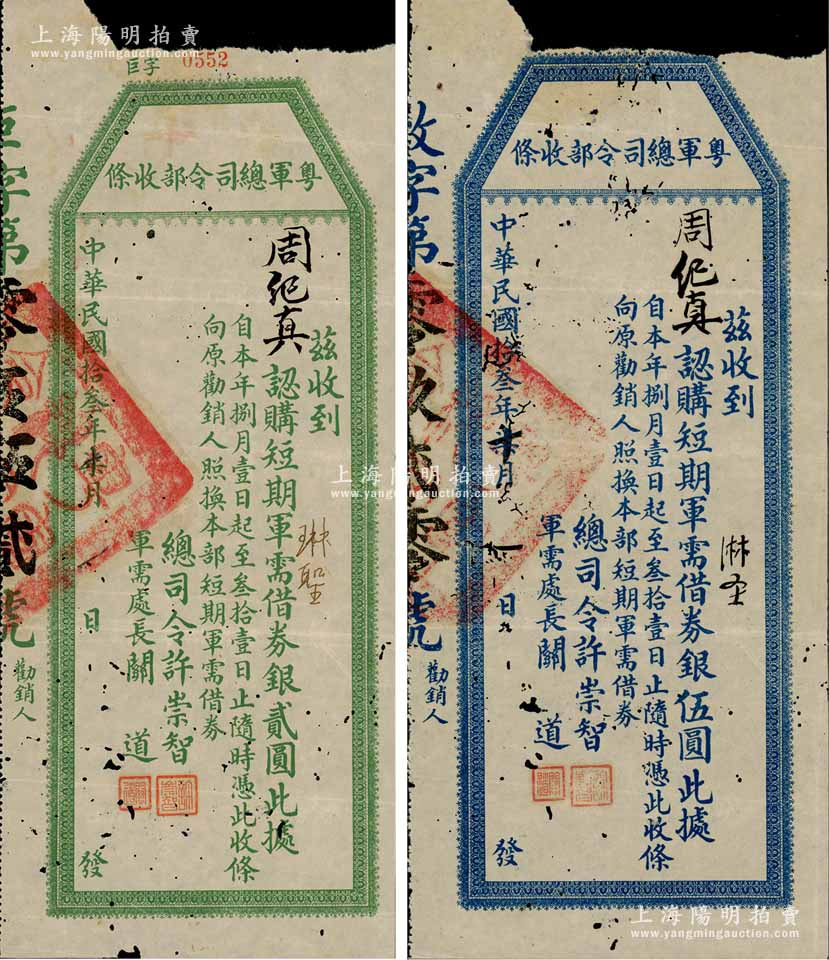 上海陽明拍賣
www.yangmingauction.com
巨字 0552
粵軍總司令部收條
茲收到
周紀真認購短期軍需借券銀貳圓此據
自本年捌月壹日起至叁拾壹日止隨時憑此收條
向原勸銷人照換本部短期軍需借券
總司令許崇智
軍需處長關道
中華民國拾叁年柒月 日 發
琳聖
巨字第零伍伍貳號
勸銷人
上海陽明拍賣
www.yangmingauction.com
粵軍總司令部收條
茲收到
周紀真認購短期軍需借券銀伍圓此據
自本年捌月壹日起至叁拾壹日止隨時憑此收條
向原勸銷人照換本部短期軍需借券
總司令許崇智
軍需處長關道
中華民國拾叁年 月 日 發
字第零玖 零號
勸銷人
上海陽明拍賣
www.yangmingauction.com